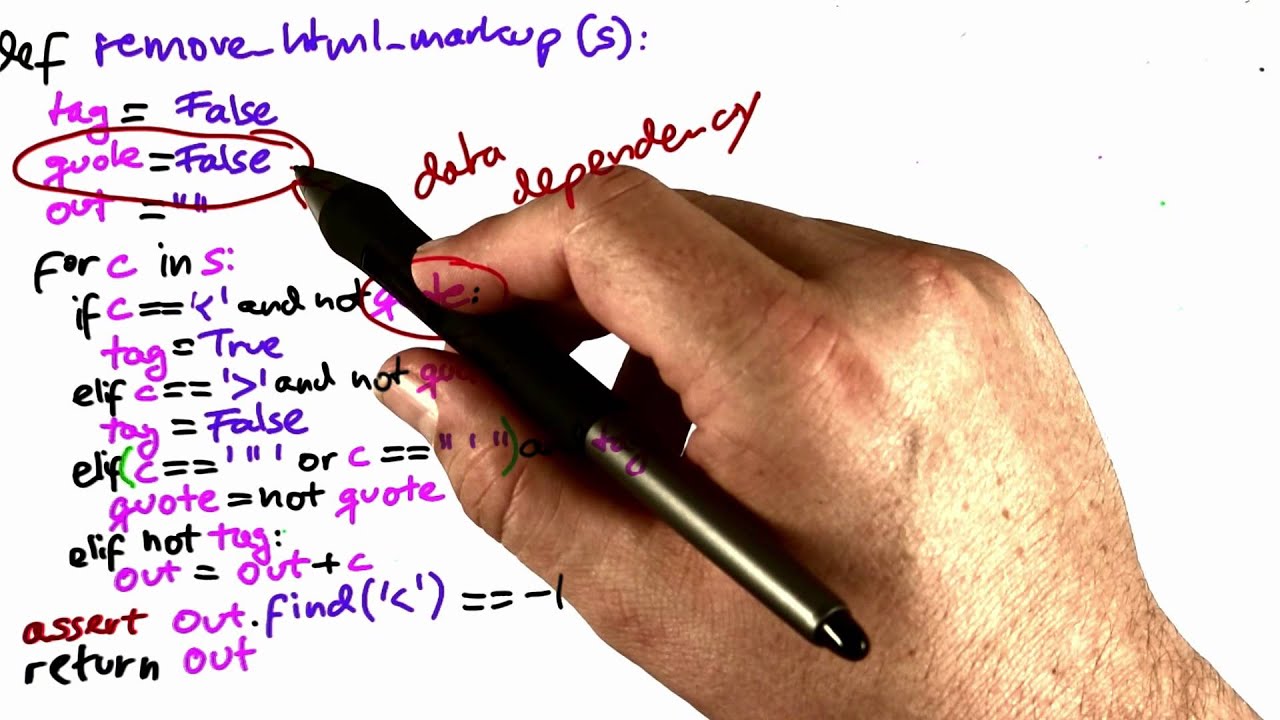 def remove_html_markup (s):
tag = False
quote = False
data dependency
out = ""
for c in s:
if c == '<' and not quote:
tag = True
elif c == '>' and not
tag = False
elif (c == '"' or c == "'") and tag
quote = not quote
elif not tag:
out = out + c
assert out.find('<') == -1
return out